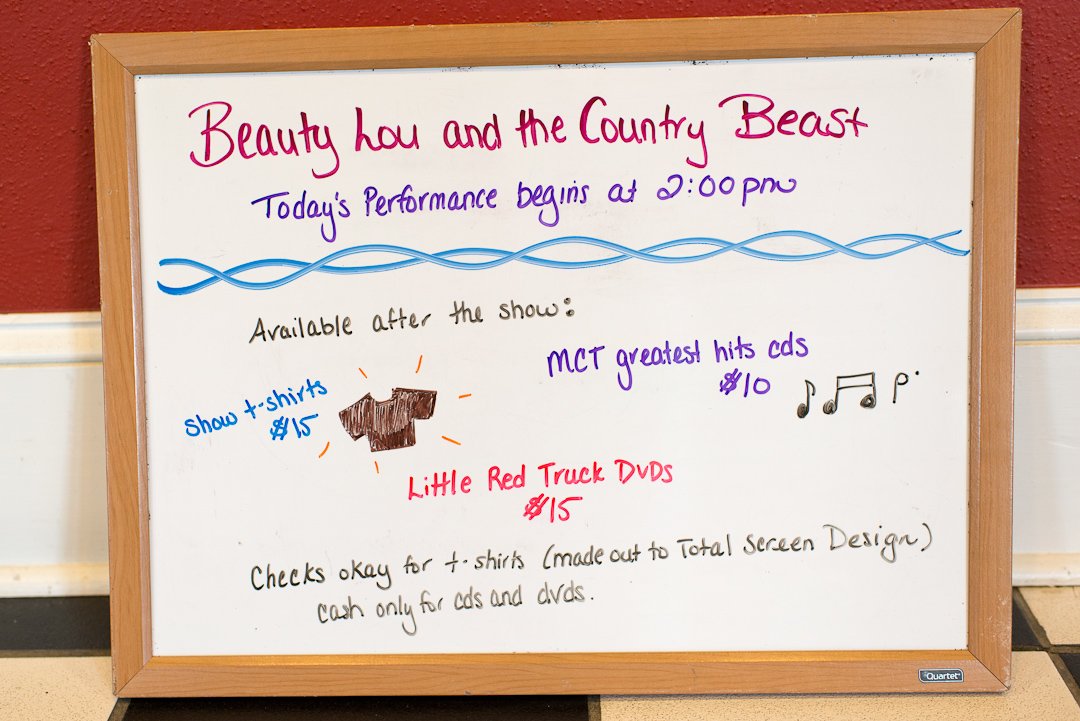 Beauty Lou and the Country Beast
Today's Performance begins at 2:00pm
Available after the show:
MCT greatest hits cds
$10
Show t-shirts
$15
Little Red Truck DVDs
$15
Checks okay for t-shirts (made out to Total Screen Design)
cash only for cds and dvds.
Quartet